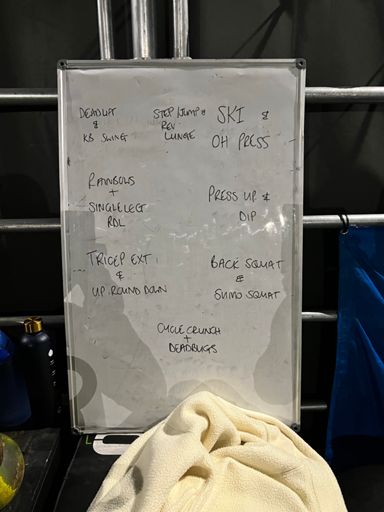 DEADLIFT
&
KB SWING
STEP/JUMP &
REV
LUNGE
SKI &
OH PRESS
RAINBOWS
+
SINGLE LEG
RDL
PRESS UP &
DIP
TRICEP EXT
&
UP ROUND DOWN
BACK SQUAT
&
SUMO SQUAT
CYCLE CRUNCH
+
DEADBUGS